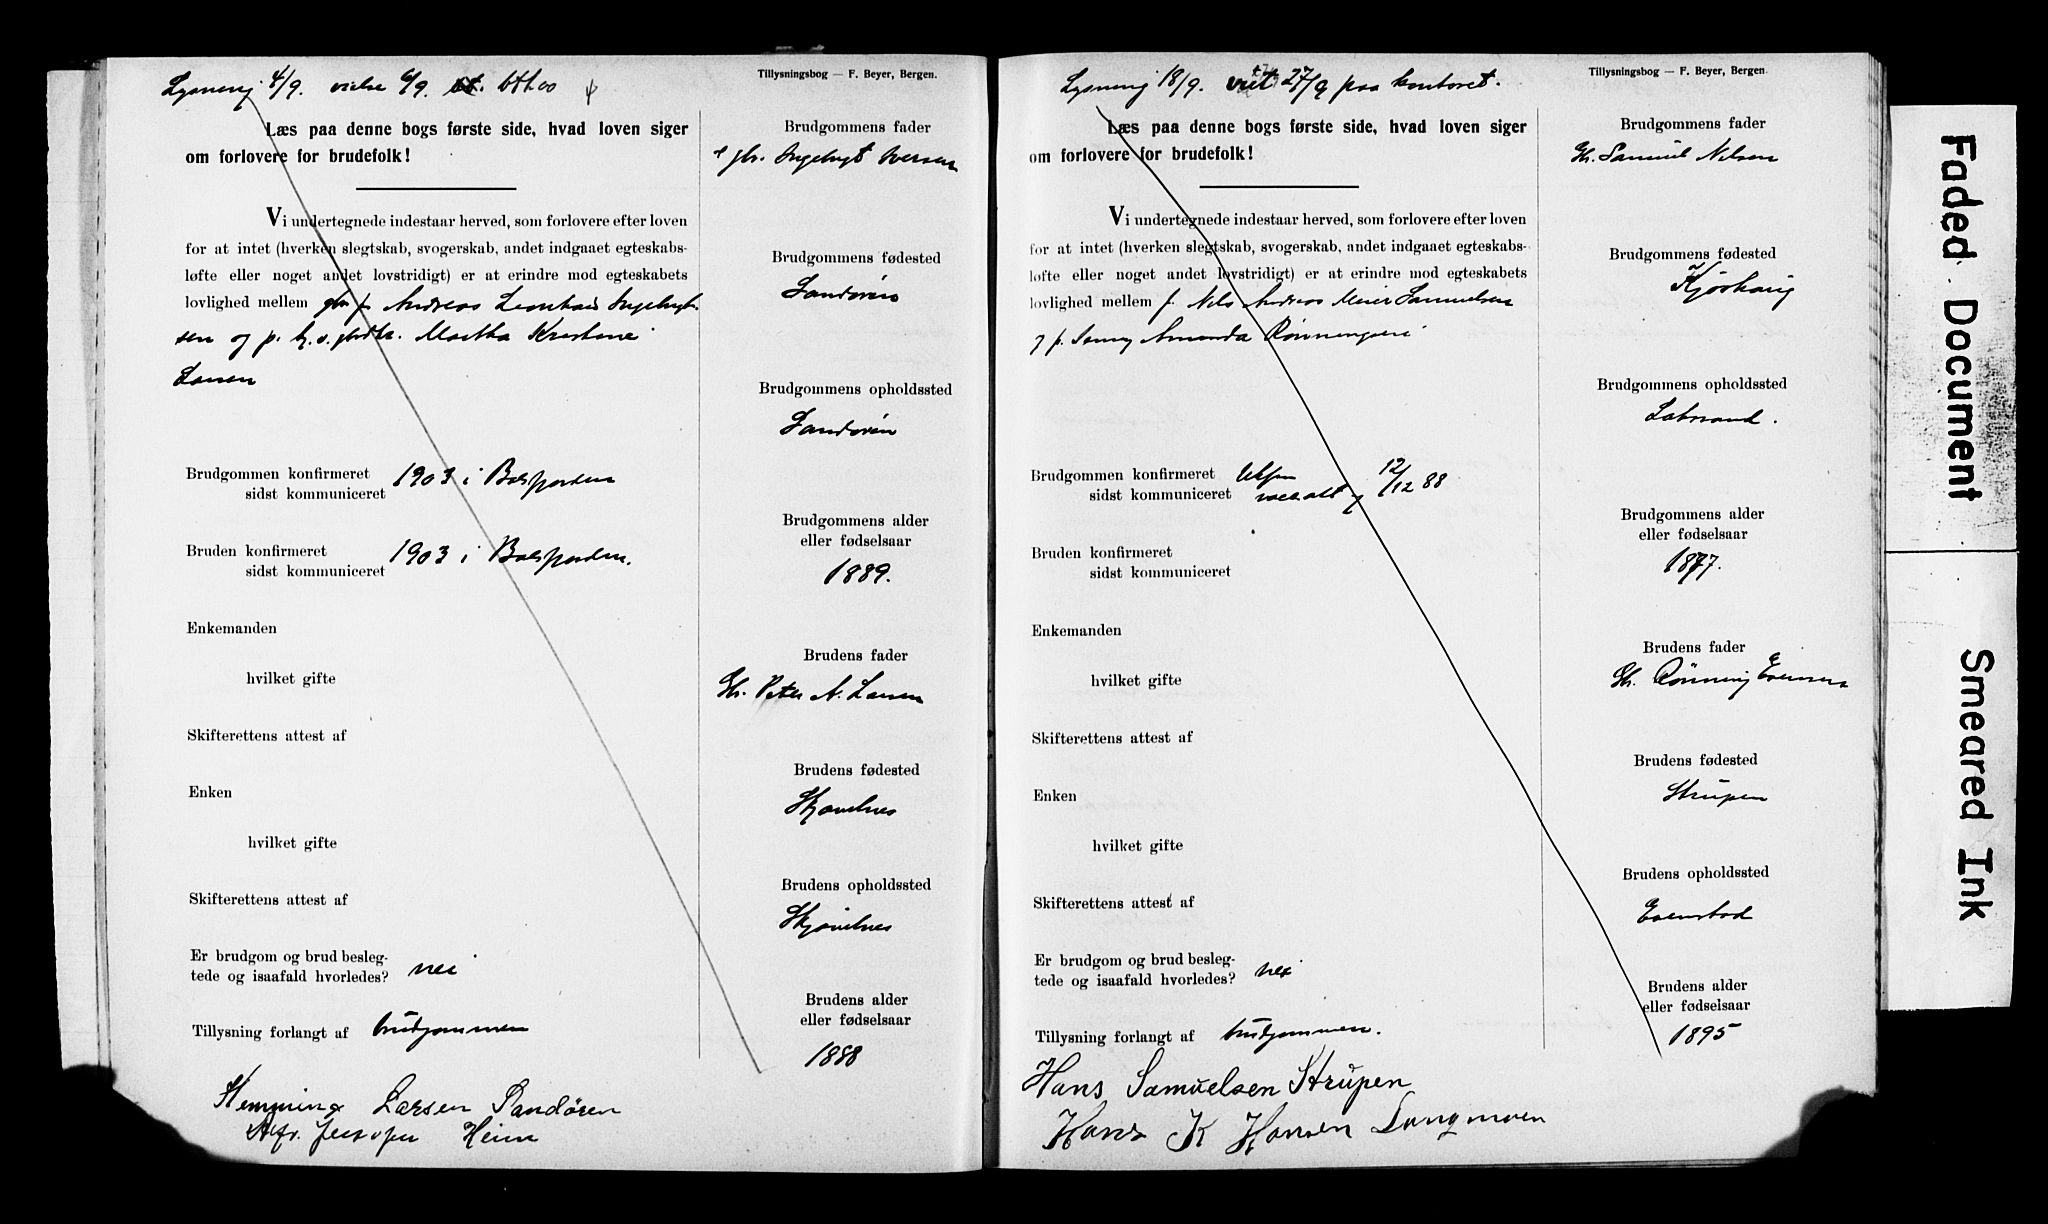 Tillysningsbog — F. Beyer, Bergen.
Lysning 4/9. vielse 6/9.
Læs paa denne bogs første side, hvad loven siger
om forlovere for brudefolk!
Vi undertegnede indestaar herved, som forlovere efter loven
for at intet (hverken slegtskab, svogerskab, andet indgaaet egteskabs-
løfte eller noget andet lovstridigt) er at erindre mod egteskabets
lovlighed mellem Andreas Leonhard Ingebrigt
sen og p. Martha Kristine
Larsen
Brudgommen konfirmeret 1903 i Balsfjorden
sidst kommuniceret
Bruden konfirmeret 1903 i Balsfjorden.
sidst kommuniceret
Enkemanden
hvilket gifte
Skifterettens attest af
Enken
hvilket gifte
Skifterettens attest af
Er brudgom og brud besleg-
tede og isaafald hvorledes? nei
Tillysning forlangt af brudgommen
Hemming Larsen Sandøren
Heim
Brudgommens fader
Ingebrigt Iversen
Brudgommens fødested
Sandøren
Brudgommens opholdssted
Sandøren
Brudgommens alder
eller fødselsaar
1889.
Brudens fader
Gb. Peter A. Larsen
Brudens fødested
Skjævelnes
Brudens opholdssted
Skjævelnes
Brudens alder
eller fødselsaar
1888
Tillysningsbog — F. Beyer, Bergen.
Lysning 18/9. viet 27/9 paa kontoret.
Læs paa denne bogs første side, hvad loven siger
om forlovere for brudefolk!
Vi undertegnede indestaar herved, som forlovere efter loven
for at intet (hverken slegtskab, svogerskab, andet indgaaet egteskabs-
løfte eller noget andet lovstridigt) er at erindre mod egteskabets
lovlighed mellem f. Nils Andreas Meier Samuelsen
og p. Amanda Rønningsen
Brudgommen konfirmeret
sidst kommuniceret 12/12 88
Bruden konfirmeret
sidst kommuniceret
Enkemanden
hvilket gifte
Skifterettens attest af
Enken
hvilket gifte
Skifterettens attest af
Er brudgom og brud besleg-
tede og isaafald hvorledes? nei
Tillysning forlangt af brudgommen.
Hans Samuelsen Strupen
Hans K Hansen Langmoen
Brudgommens fader
Gb. Samuel Nilsen
Brudgommens fødested
Kjøshaug
Brudgommens opholdssted
Brudgommens alder
eller fødselsaar
1877.
Brudens fader
Gb. Rønning Evensen
Brudens fødested
Strupen
Brudens opholdssted
Evenstad
Brudens alder
eller fødselsaar
1895
Faded Document
Smeared Ink